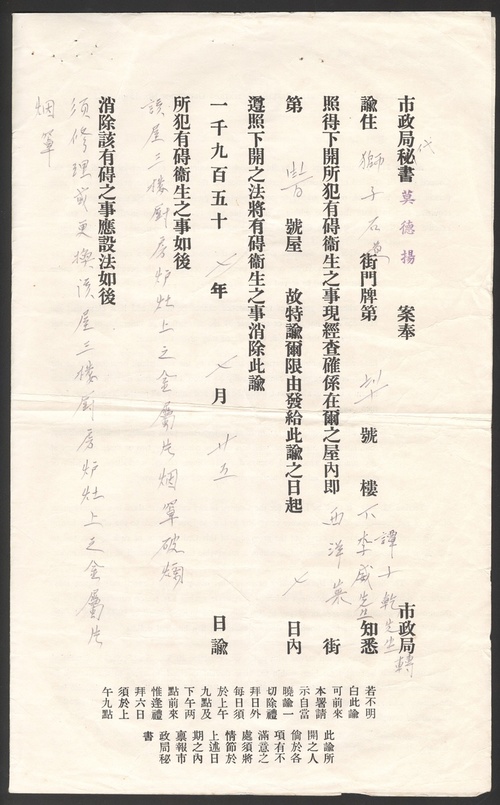 市政局秘書代莫德揚 案奉 市政局
諭住 獅子石道 街門牌第 號 樓下 譚子乾先生轉李威先生 知悉
照得下開所犯有碍衞生之事現經查確係在爾之屋內即 西洋菜 街
第 號屋 故特諭爾限由發給此諭之日起 七 日內
遵照下開之法將有碍衞生之事消除此諭
一千九百五十 七 年 七 月 廿五 日諭
所犯有碍衞生之事如後
該屋三樓廚房炉灶上之金屬片烟罩破爛
消除該有碍之事應設法如後
須修理或更換該屋三樓廚房炉灶上之金屬片
烟罩
若不明
白此諭
可前來
本署請
示自當
曉諭一
切除禮
拜日外
每日須
於上午
九點及
下午兩
點前來
惟逢禮
拜六日
須於上
午九點
此諭所
開之人
倘於各
項有不
滿意之
處須將
情節於
上述日
期之內
裏報市
政局秘
書